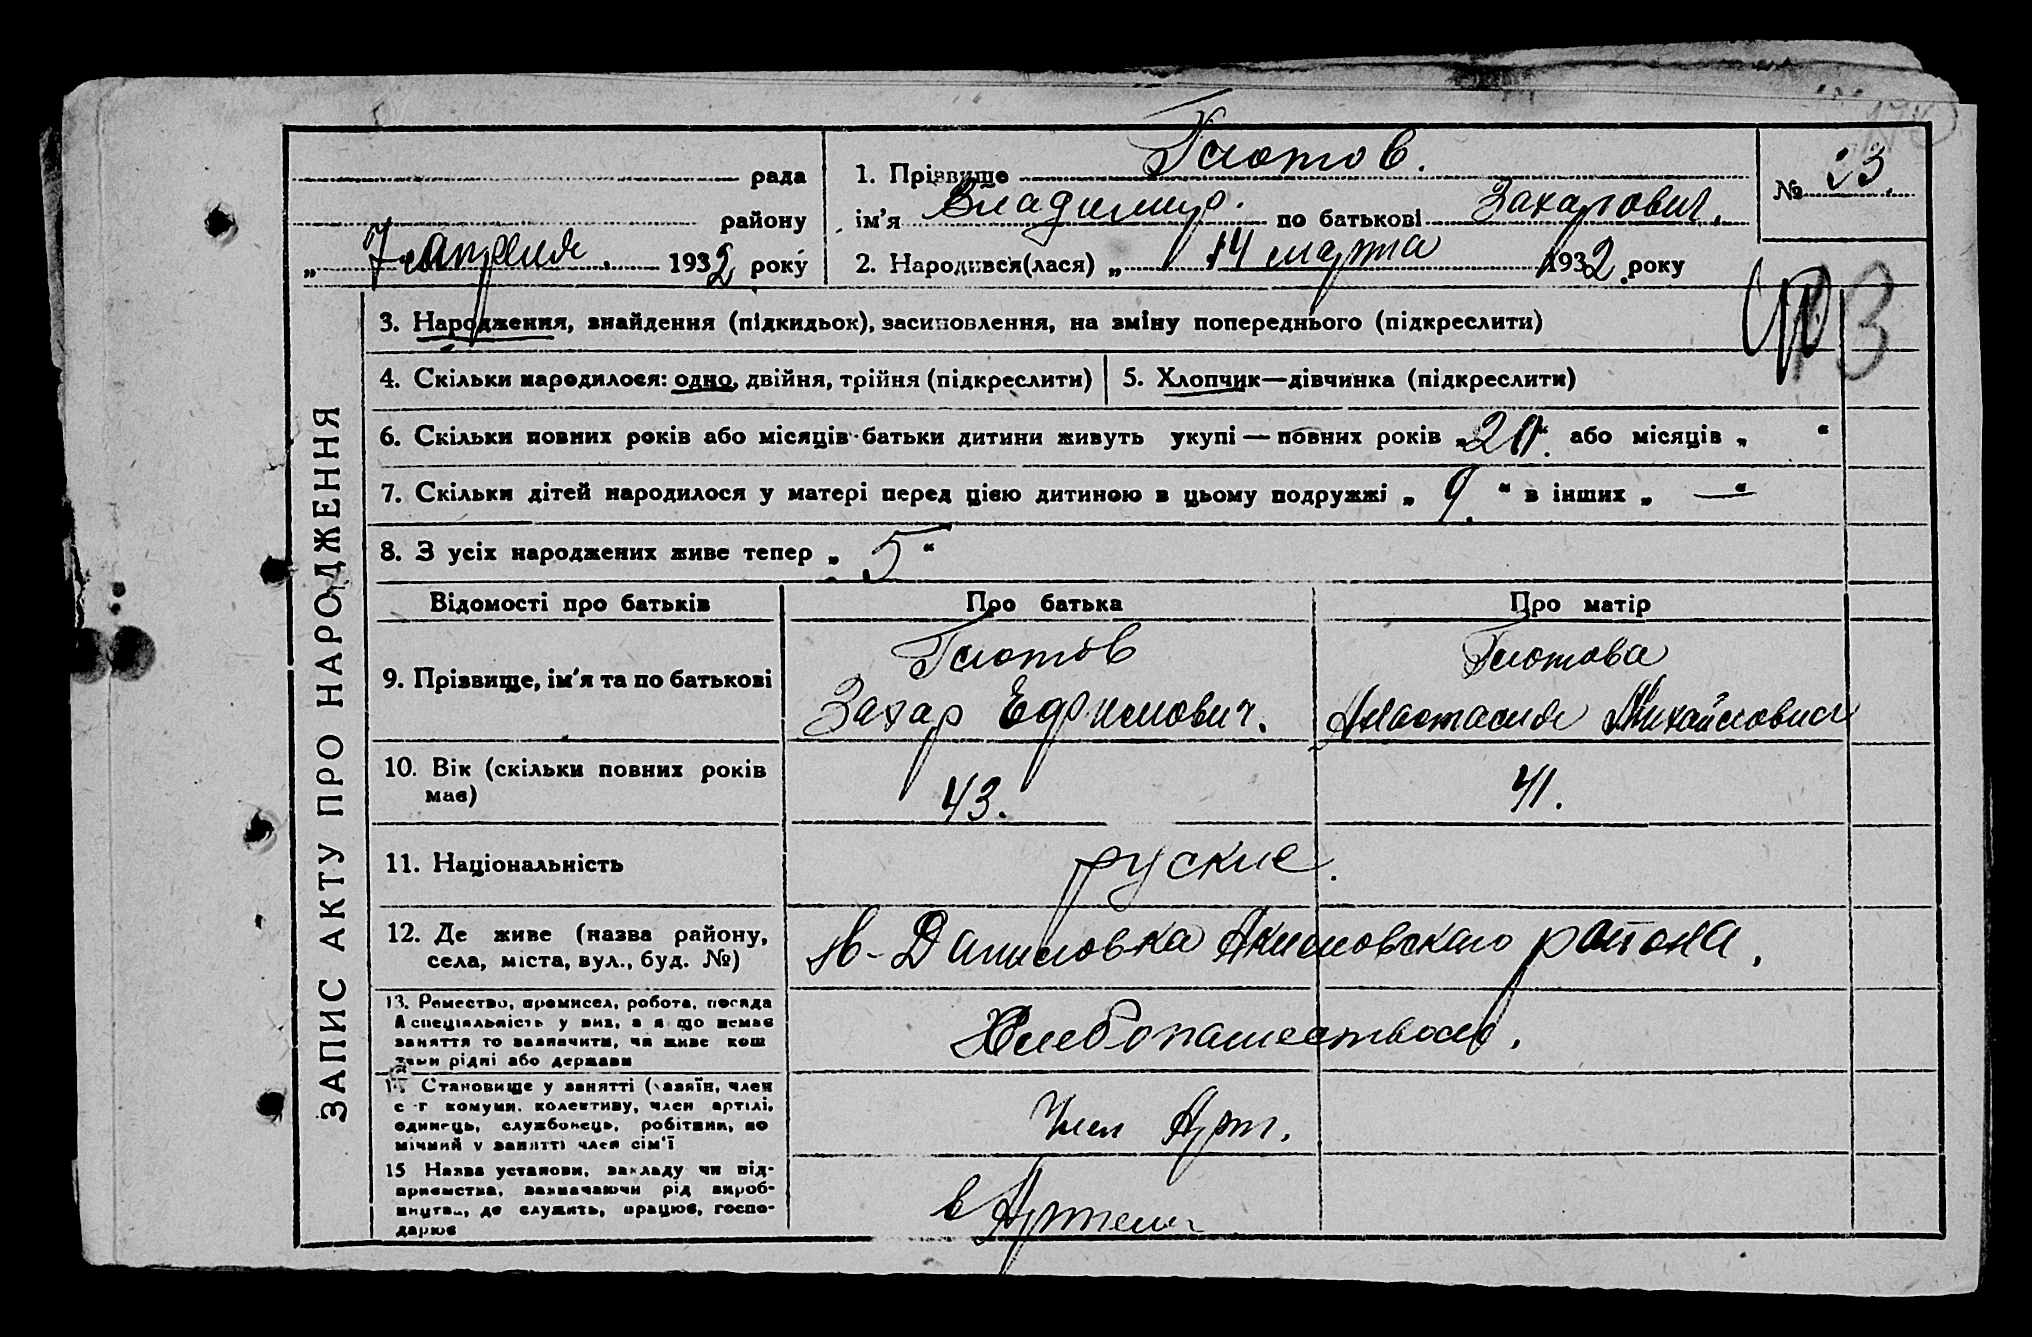 рада
району
„ 7 апреля. 1932 року
1. Прізвище Глотов.
ім'я Владимир. по батькові Захарович.
2. Народився(лася) „ 14 марта 1932 року
№ 23.
3. Народження, знайдення (підкидьок), засиновлення, на зміну попереднього (підкреслити)
4. Скільки народилося: одно, двійня, трійня (підкреслити)
5. Хлопчик—дівчинка (підкреслити)
6. Скільки повних років або місяців батьки дитини живуть укупі—повних років „ “ або місяців „ “
7. Скільки дітей народилося у матері перед цією дитиною в цьому подружжі „ 9. “ в інших „ — “
8. З усіх народжених живе тепер „ 5 “
ЗАПИС АКТУ ПРО НАРОДЖЕННЯ
Відомості про батьків
Про батька
Про матір
9. Прізвище, ім'я та по батькові
Глотов
Захар Ефимович.
Глотова
Анастасия Михайловна
10. Вік (скільки повних років
має)
43.
41.
11. Національність
руские.
12. Де живе (назва району,
села, міста, вул., буд. №)
Н-Даниловка Акимовскаго района.
13. Ремество, промисел, робота, посада
й спеціяльність у них, а якщо немає
заняття то зазначити, чи живе кош
тами рідні або держави
Хлебопашеством.
14 Становище у занятті (хазяїн, член
с-г комуни, колективу, член артілі,
одинець, службовець, робітник, по
мічний у занятті член сім'ї
Член Арт.
15 Назва установи, закладу чи під-
приємства, зазначаючи рід вироб-
ництва, де служить, працює, госпо-
дарює
в Артели